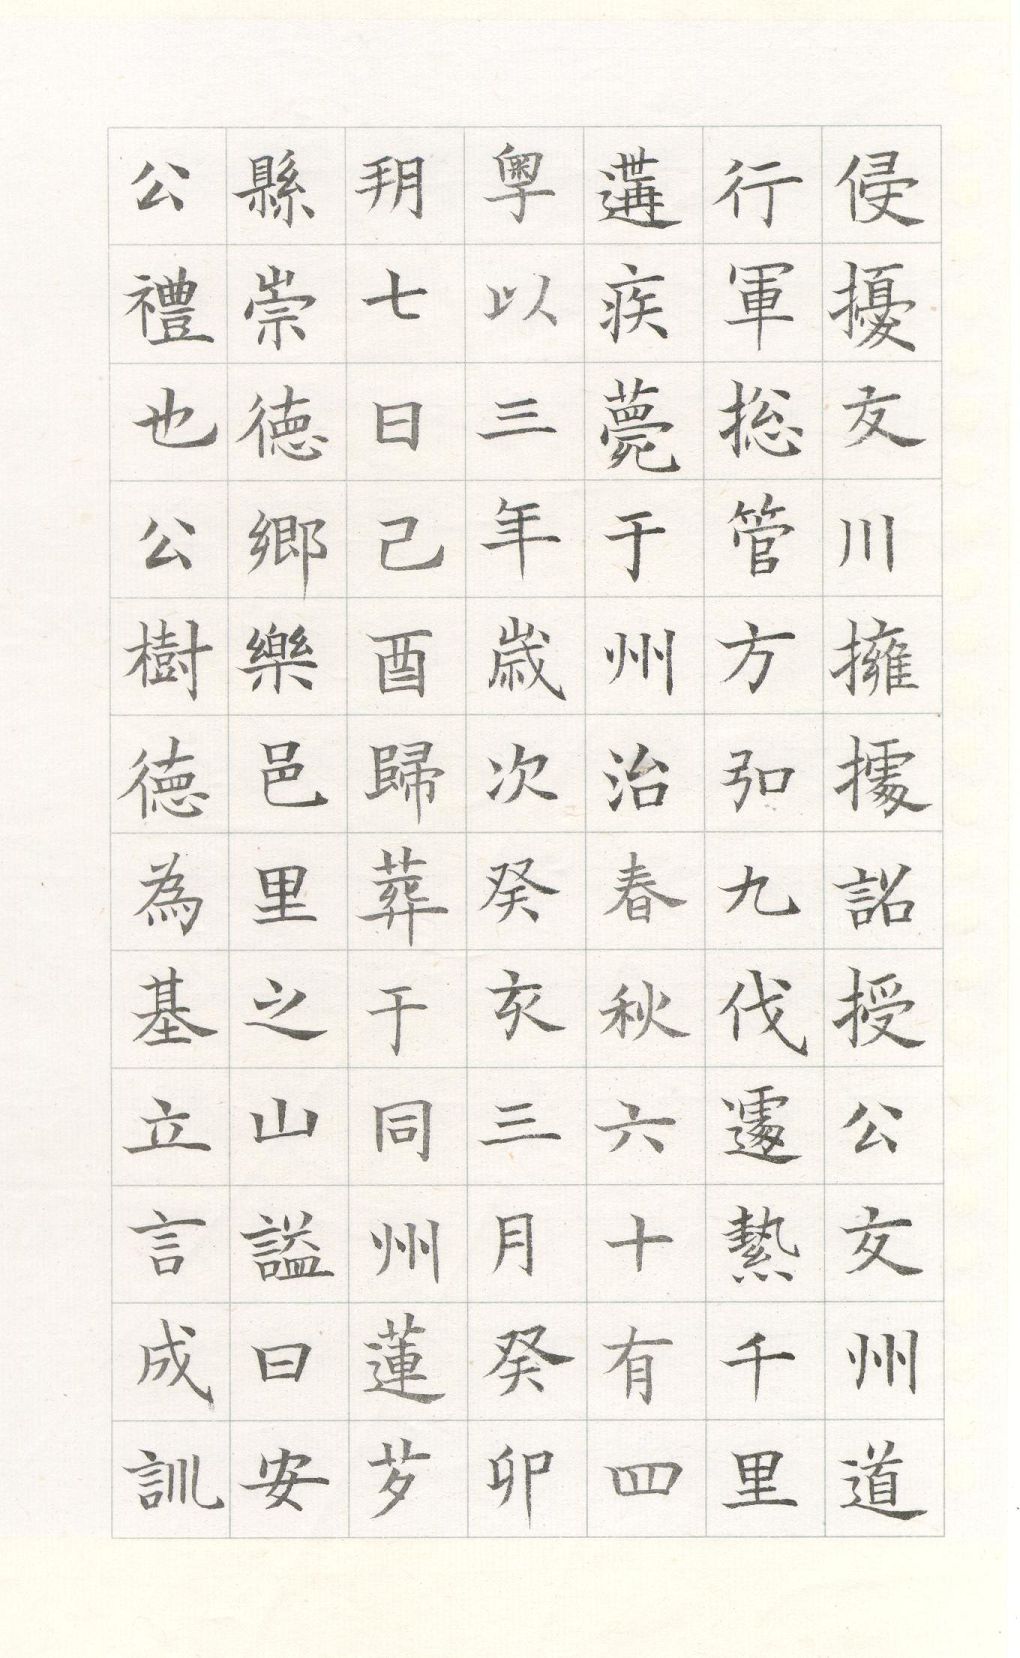 侵擾交川擁據詔授公交州道
行軍総管方弘九伐遽熱千里
遘疾薨于州治春秋六十有四
粤以三年歳次癸亥三月癸卯
朔七日己酉歸葬于同州蓮芍
縣崇德鄉樂邑里之山謚曰安
公禮也公樹德為基立言成訓